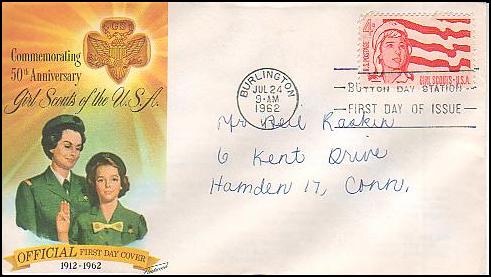 Commemorating
50th Anniversary
Girl Scouts of the U.S.A.
GS
OFFICIAL FIRST DAY COVER
1912-1962
4¢
U.S. POSTAGE
GIRL SCOUTS · U.S.A.
BURLINGTON
JUL 24
9-AM
1962
BUTTON DAY STATION
FIRST DAY OF ISSUE
Mr Raskin
6 Kent Drive
Hamden 17, Conn.